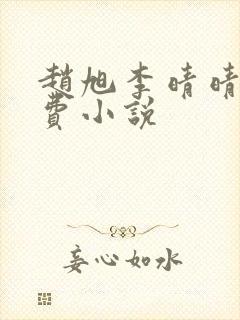 趙旭李晴晴
費小說
妄心如水